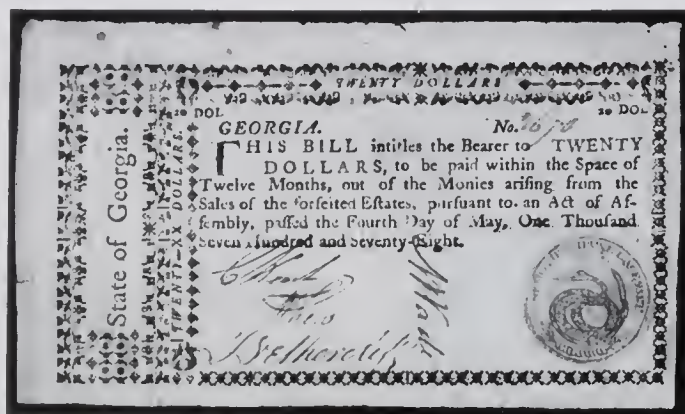 TWENTY DOLLARS
20 DOL 20 DOL
State of Georgia.
TWENTY-XX DOLLARS.
GEORGIA. No.
THIS BILL intitles the Bearer to TWENTY
DOLLARS, to be paid within the Space of
Twelve Months, out of the Monies arising from the
Sales of the forfeited Estates, pursuant to an Act of Af-
sembly, passed the Fourth Day of May, One Thousand
Seven Hundred and Seventy-Eight.